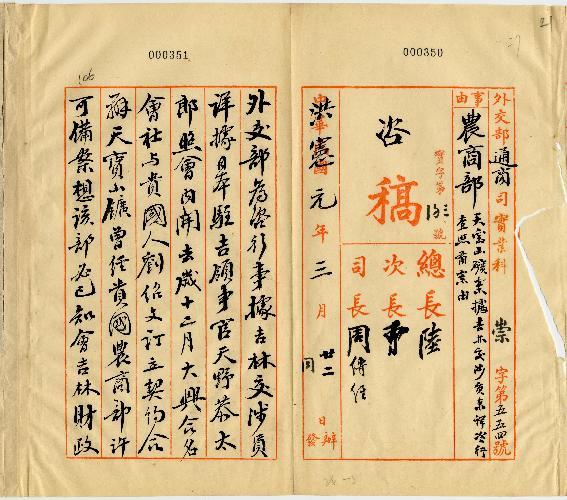 000351
000350
外交部通商司實業科 崇字第五五四號
事由
農商部
天寶山礦案據吉林交涉員亲詳咨行
查照備案由
咨
稿
實字第 號
總長陸
次長
司長周傳經
洪憲元年三月廿二日辦
同 發
外交部為咨行事據吉林交涉員
詳據日本駐吉領事官天野恭太
郎照會內開去歲十二月大興合名
會社与貴國人劉紹文訂立契約合
辦天寶山鑛曾經貴國農商部許
可備案想該部必已知會吉林財政